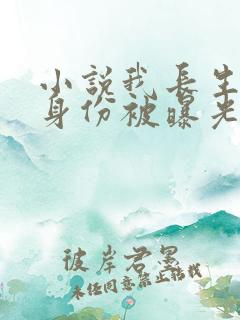 小說我長生
身份被曝光
彼岸君墨
未任同意禁止转载